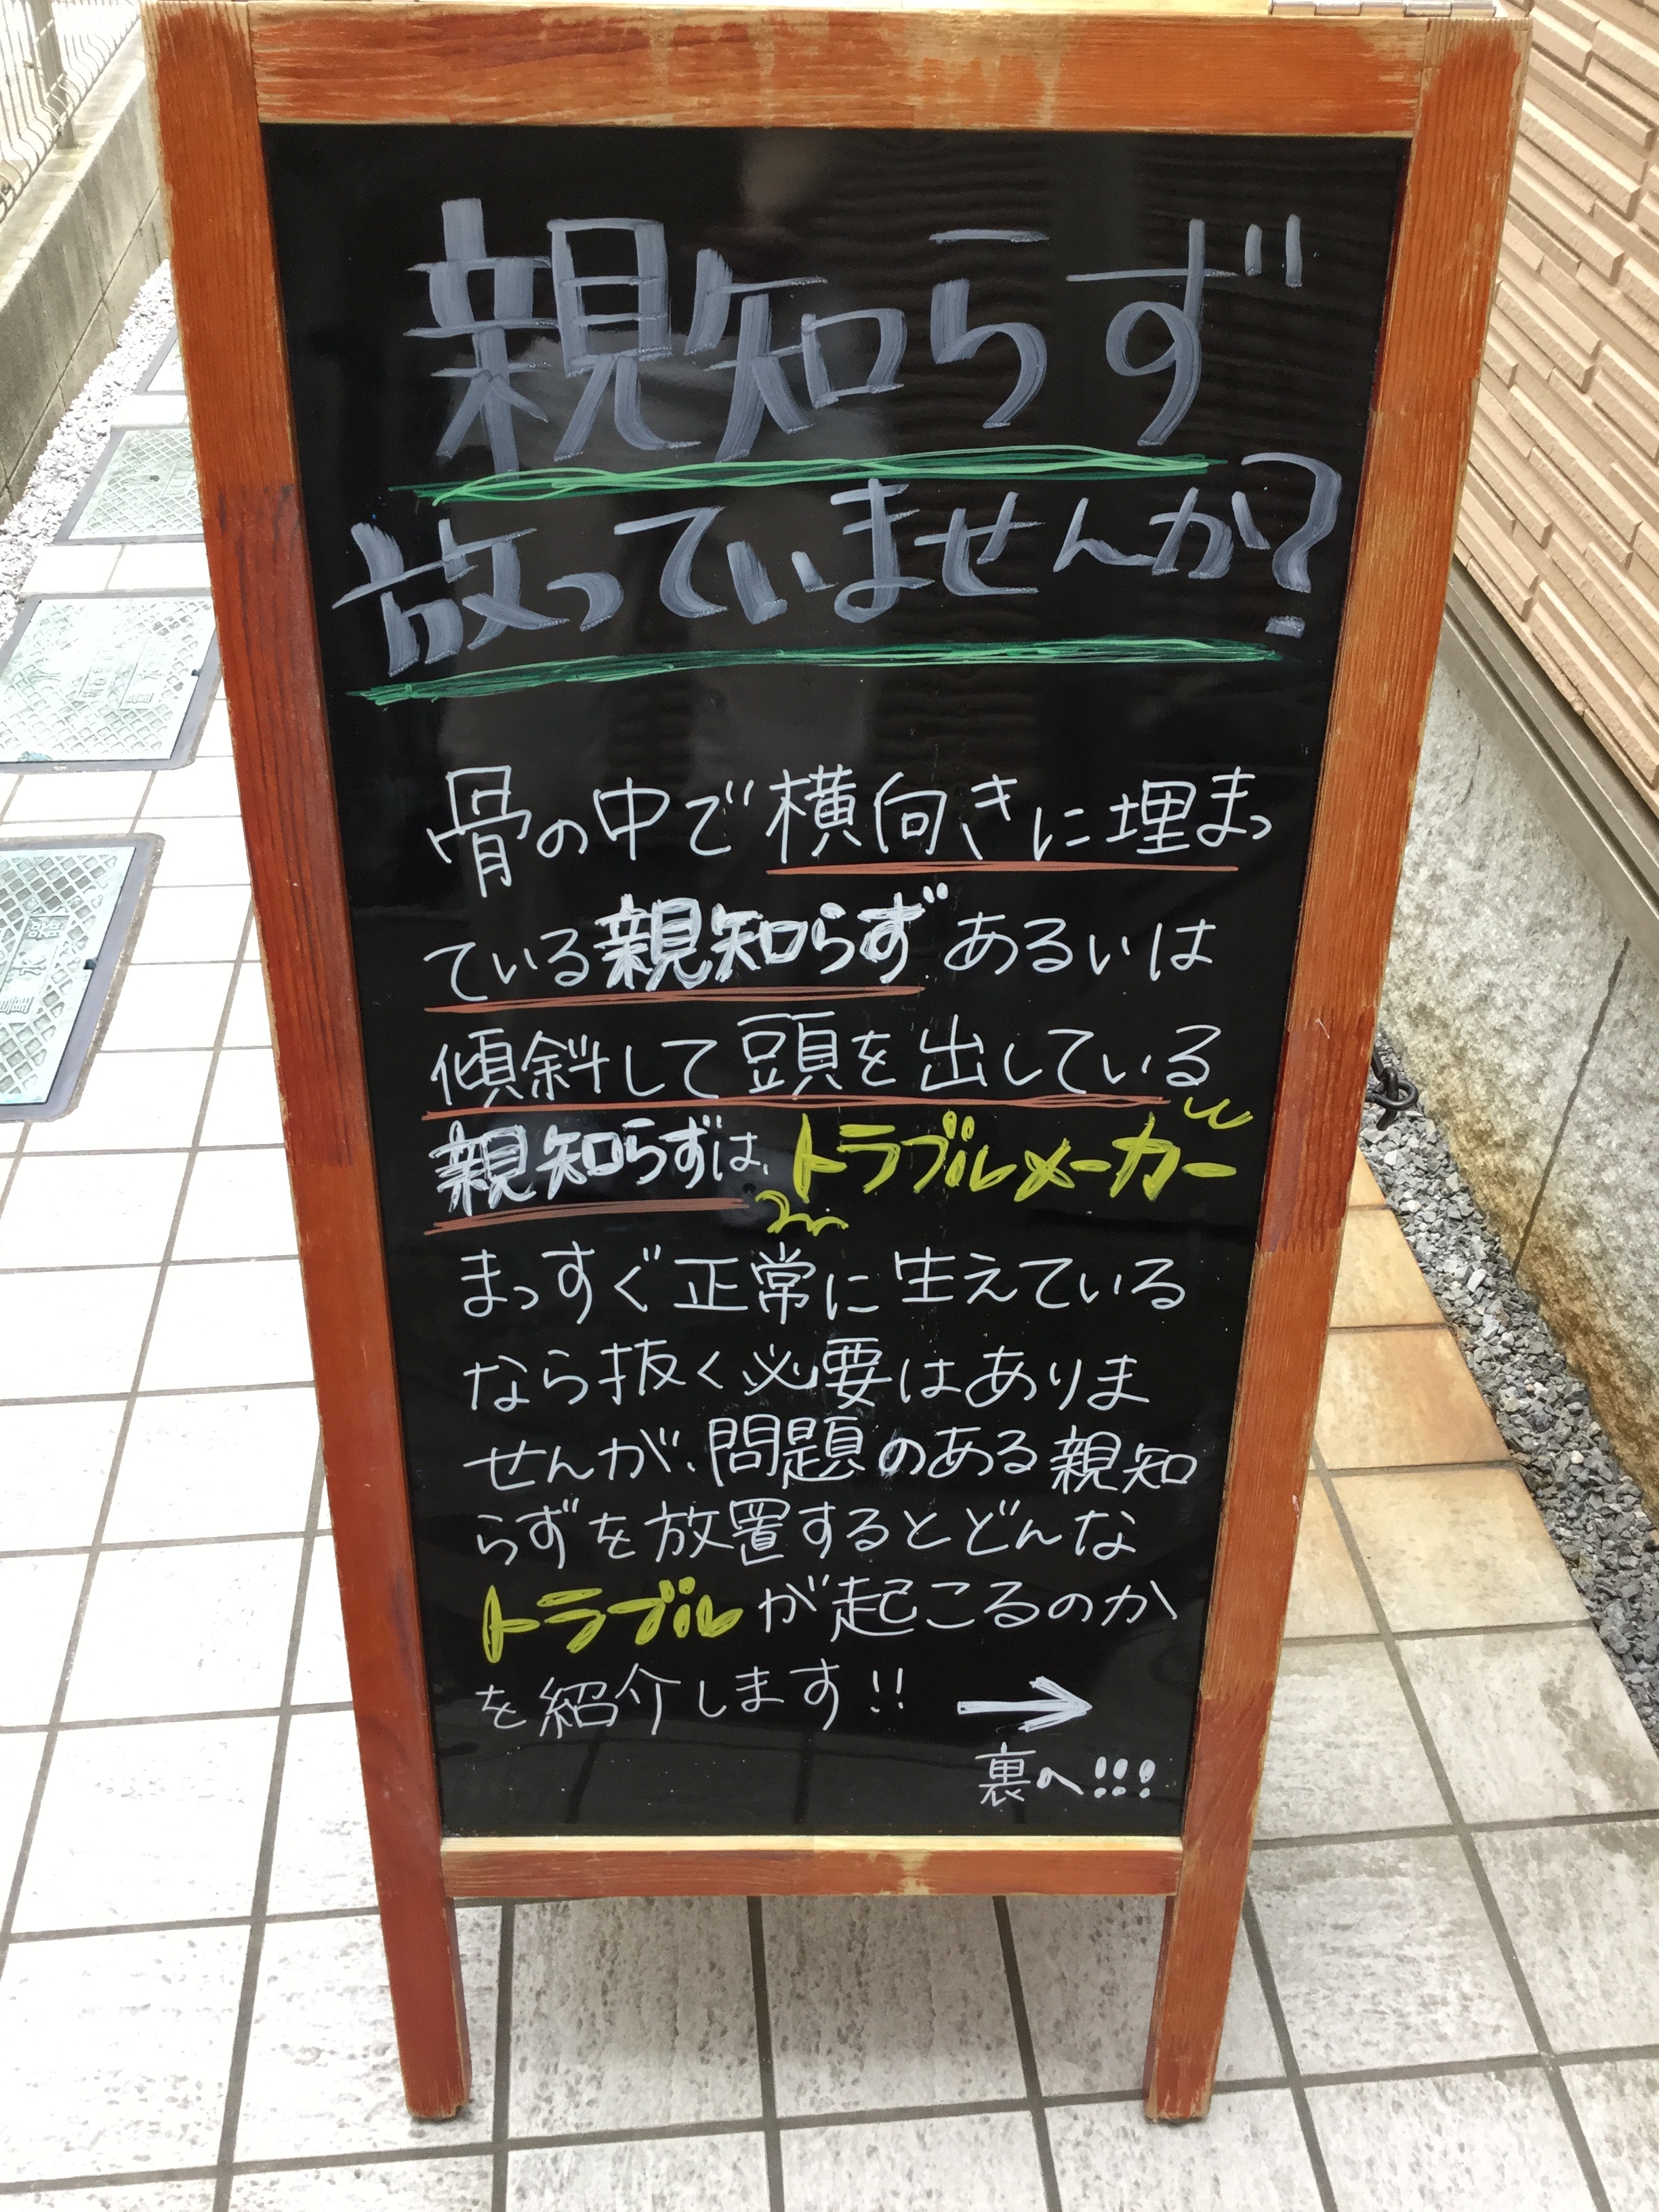 親知らず
放っていませんか?
骨の中で横向きに埋まっ
ている親知らずあるいは
傾斜して頭を出している
親知らずは、トラブルメーカー
まっすぐ正常に生えている
なら抜く必要はありま
せんが、問題のある親知
らずを放置するとどんな
トラブルが起こるのか
を紹介します!! →
裏へ!!!